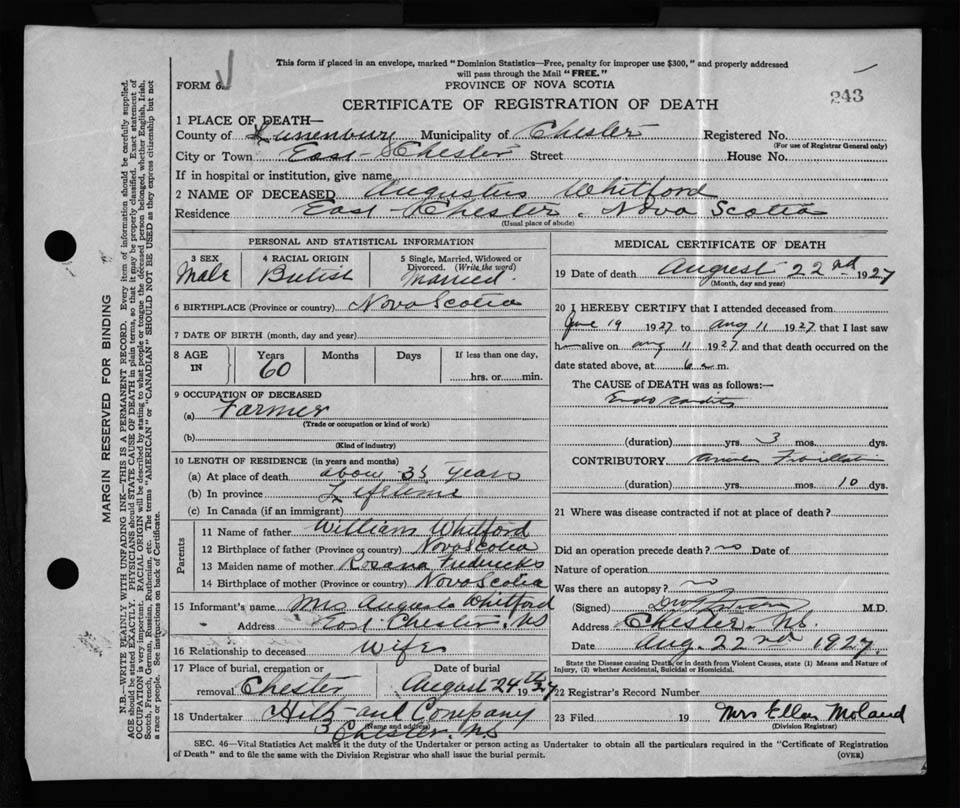 This form if placed in an envelope, marked "Dominion Statistics—Free, penalty for improper use $300," and properly addressed
will pass through the Mail "FREE."
FORM 6.
PROVINCE OF NOVA SCOTIA
243
CERTIFICATE OF REGISTRATION OF DEATH
1 PLACE OF DEATH—
County of Lunenburg Municipality of Chester Registered No.
(For use of Registrar General only)
City or Town East Chester Street House No.
If in hospital or institution, give name
2 NAME OF DECEASED Augustus Whitford
Residence East Chester. Nova Scotia
(Usual place of abode)
PERSONAL AND STATISTICAL INFORMATION
3 SEX 4 RACIAL ORIGIN 5 Single, Married, Widowed or
Divorced. (Write the word)
Male British Married.
6 BIRTHPLACE (Province or country) Nova Scotia
7 DATE OF BIRTH (month, day and year)
8 AGE IN Years Months Days If less than one day,
60 hrs. or min.
9 OCCUPATION OF DECEASED
(a) Farmer
(Trade or occupation or kind of work)
(b)
(Kind of industry)
10 LENGTH OF RESIDENCE (in years and months)
(a) At place of death about 35 years
(b) In province Lifetime
(c) In Canada (if an immigrant)
Parents
11 Name of father William Whitford
12 Birthplace of father (Province or country) Nova Scotia
13 Maiden name of mother Rosana Fredericks
14 Birthplace of mother (Province or country) Nova Scotia
15 Informant's name Mrs Whitford
Address East Chester. NS
16 Relationship to deceased Wife
17 Place of burial, cremation or Date of burial
removal. Chester August 24th 1927
18 Undertaker Hilt and Company
(Name and address)
Chester. NS
MEDICAL CERTIFICATE OF DEATH
19 Date of death August 22nd 1927
(Month, day and year)
20 I HEREBY CERTIFY that I attended deceased from
June 19 1927 to Aug 11 1927 that I last saw
h alive on Aug 11 1927 and that death occurred on the
date stated above, at 6 a m.
The CAUSE of DEATH was as follows:—
Endocarditis
(duration) yrs. 3 mos. dys.
CONTRIBUTORY
(duration) yrs. mos. 10 dys.
21 Where was disease contracted if not at place of death?
Did an operation precede death? no Date of
Nature of operation
Was there an autopsy? no
(Signed) M.D.
Address Chester. NS.
Date Aug. 22nd 1927.
State the Disease causing Death, or in death from Violent Causes, state (1) Means and Nature of
Injury, (2) whether Accidental, Suicidal or Homicidal.
22 Registrar's Record Number
23 Filed 19 Mrs Ellen
(Division Registrar)
SEC. 46—Vital Statistics Act makes it the duty of the Undertaker or person acting as Undertaker to obtain all the particulars required in the "Certificate of Registration
of Death" and to file the same with the Division Registrar who shall issue the burial permit.
(OVER)
MARGIN RESERVED FOR BINDING
N.B.—WRITE PLAINLY WITH UNFADING INK—THIS IS A PERMANENT RECORD. Every item of information should be carefully supplied.
AGE should be stated EXACTLY. PHYSICIANS should STATE CAUSE OF DEATH in plain terms, so that it may be properly classified. Exact statement of
OCCUPATION is very important. RACIAL ORIGIN will be described by stating to what people or tongue the deceased person belonged, whether English, Irish,
Scotch, French, German, Russian, Ruthenian, etc. The terms "AMERICAN" or "CANADIAN" SHOULD NOT BE USED as they express citizenship but not
a race or people. See instructions on back of Certificate.